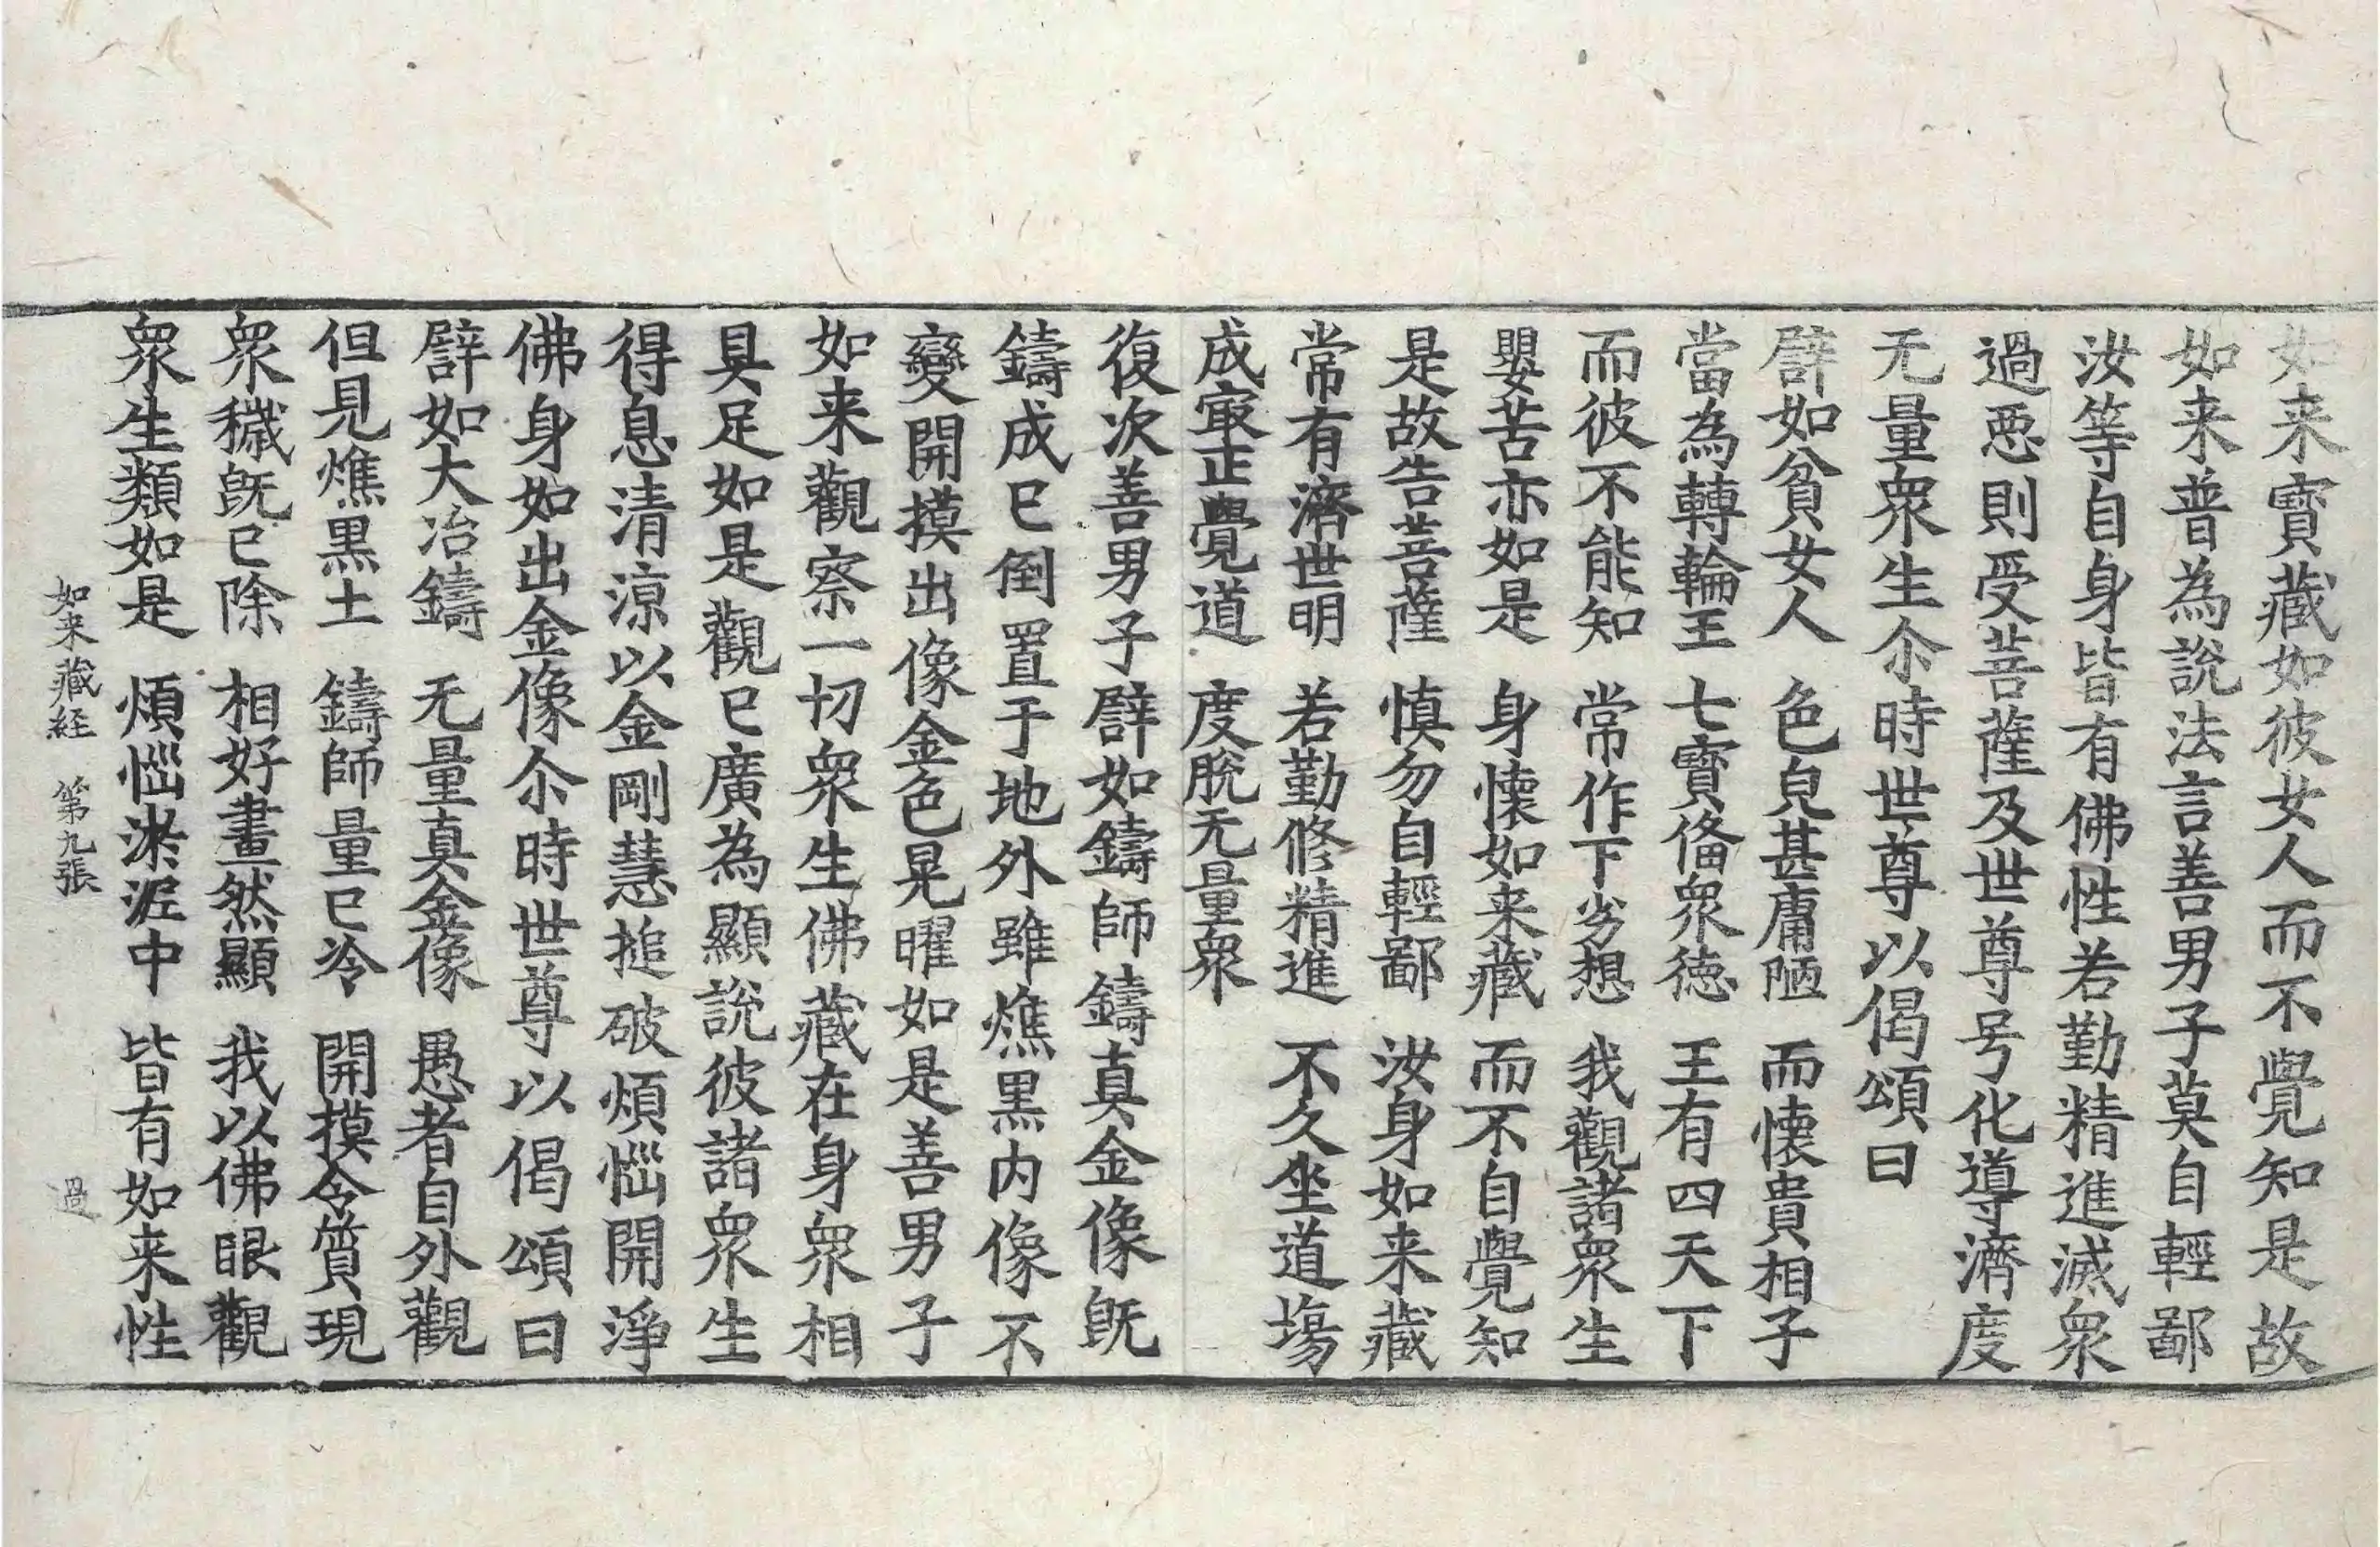 如来寶藏如彼女人而不覺知是故
如来普為說法言善男子莫自輕鄙
汝等自身皆有佛性若勤精進滅衆
過悪則受菩薩及世尊号化導濟度
无量衆生尒時世尊以偈頌曰
譬如貧女人　色皃甚庸陋　而懐貴相子
當為轉輪王　七寶俻衆徳　王有四天下
而彼不能知　常作下劣想　我觀諸衆生
嬰苦亦如是　身懐如来藏　而不自覺知
是故告菩薩　慎勿自輕鄙　汝身如来藏
常有濟世明　若勤修精進　不久坐道塲
成㝡正覺道　度脫无量衆
復次善男子譬如鑄師鑄真金像既
鑄成已倒置于地外雖燋黒内像不
變開摸出像金色晃曜如是善男子
如来觀察一切衆生佛藏在身衆相
具足如是觀已廣為顯說彼諸衆生
得息清涼以金剛慧搥破煩惱開淨
佛身如出金像尒時世尊以偈頌曰
譬如大冶鑄　无量真金像　愚者自外觀
但見燋黒土　鑄師量已冷　開摸令質現
衆穢既已除　相好畫然顯　我以佛眼觀
衆生類如是　煩惱淤泥中　皆有如来性
如来藏経　第九張　過